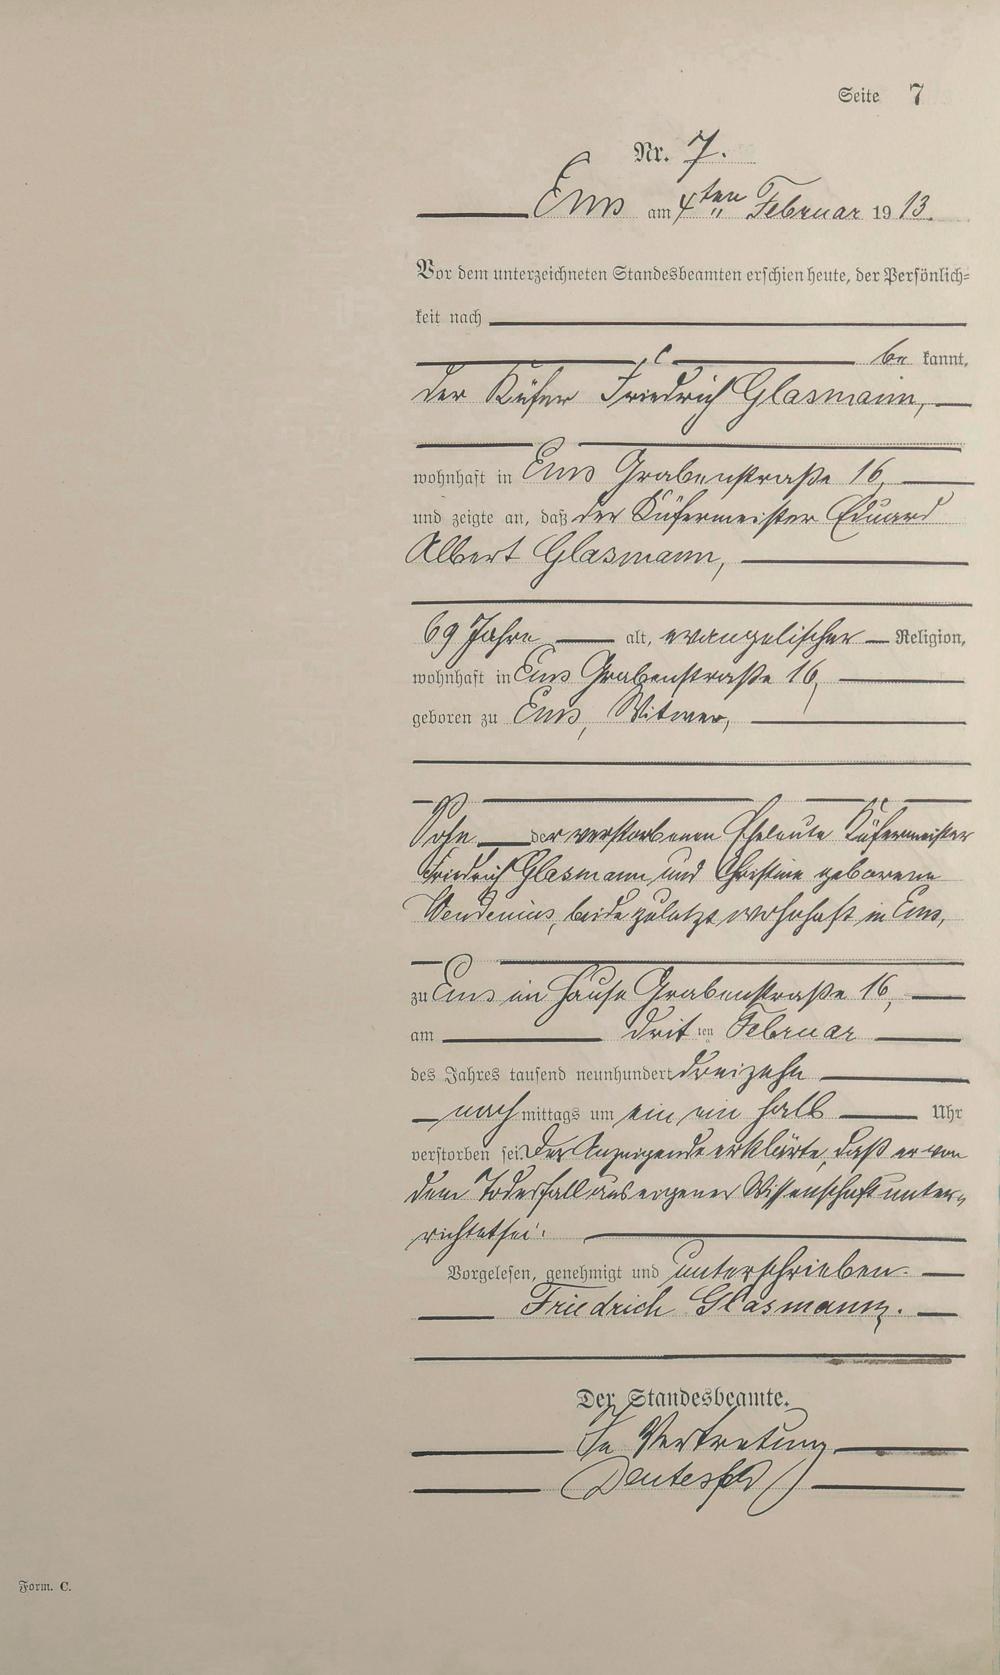 Seite 7
Nr. 7.
Ems am 4ten Februar 1913.
Vor dem unterzeichneten Standesbeamten erschien heute, der Persönlich=
keit nach
be kannt,
der Küfer Friedrich Glasmann,
wohnhaft in Ems Grabenstraße 16,
und zeigte an, daß der Küfermeister Eduard
Albert Glasmann,
69 Jahre alt, evangelischer Religion,
wohnhaft in Ems Grabenstraße 16,
geboren zu Ems, Witwer,
Sohn der verstorbenen Eheleute Küfermeister
Friedrich Glasmann und Christine geborene
beide zuletzt wohnhaft in Ems,
zu Ems im Hause Grabenstraße 16,
am dritten Februar
des Jahres tausend neunhundert dreizehn
nachmittags um ein ein halb Uhr
verstorben sei. Der Anzeigende erklärte, daß er von
dem Todesfall aus eigener Wissenschaft unter=
richtet sei.
Vorgelesen, genehmigt und unterschrieben.
Friedrich Glasmann.
Der Standesbeamte.
In Vertretung
Form. C.